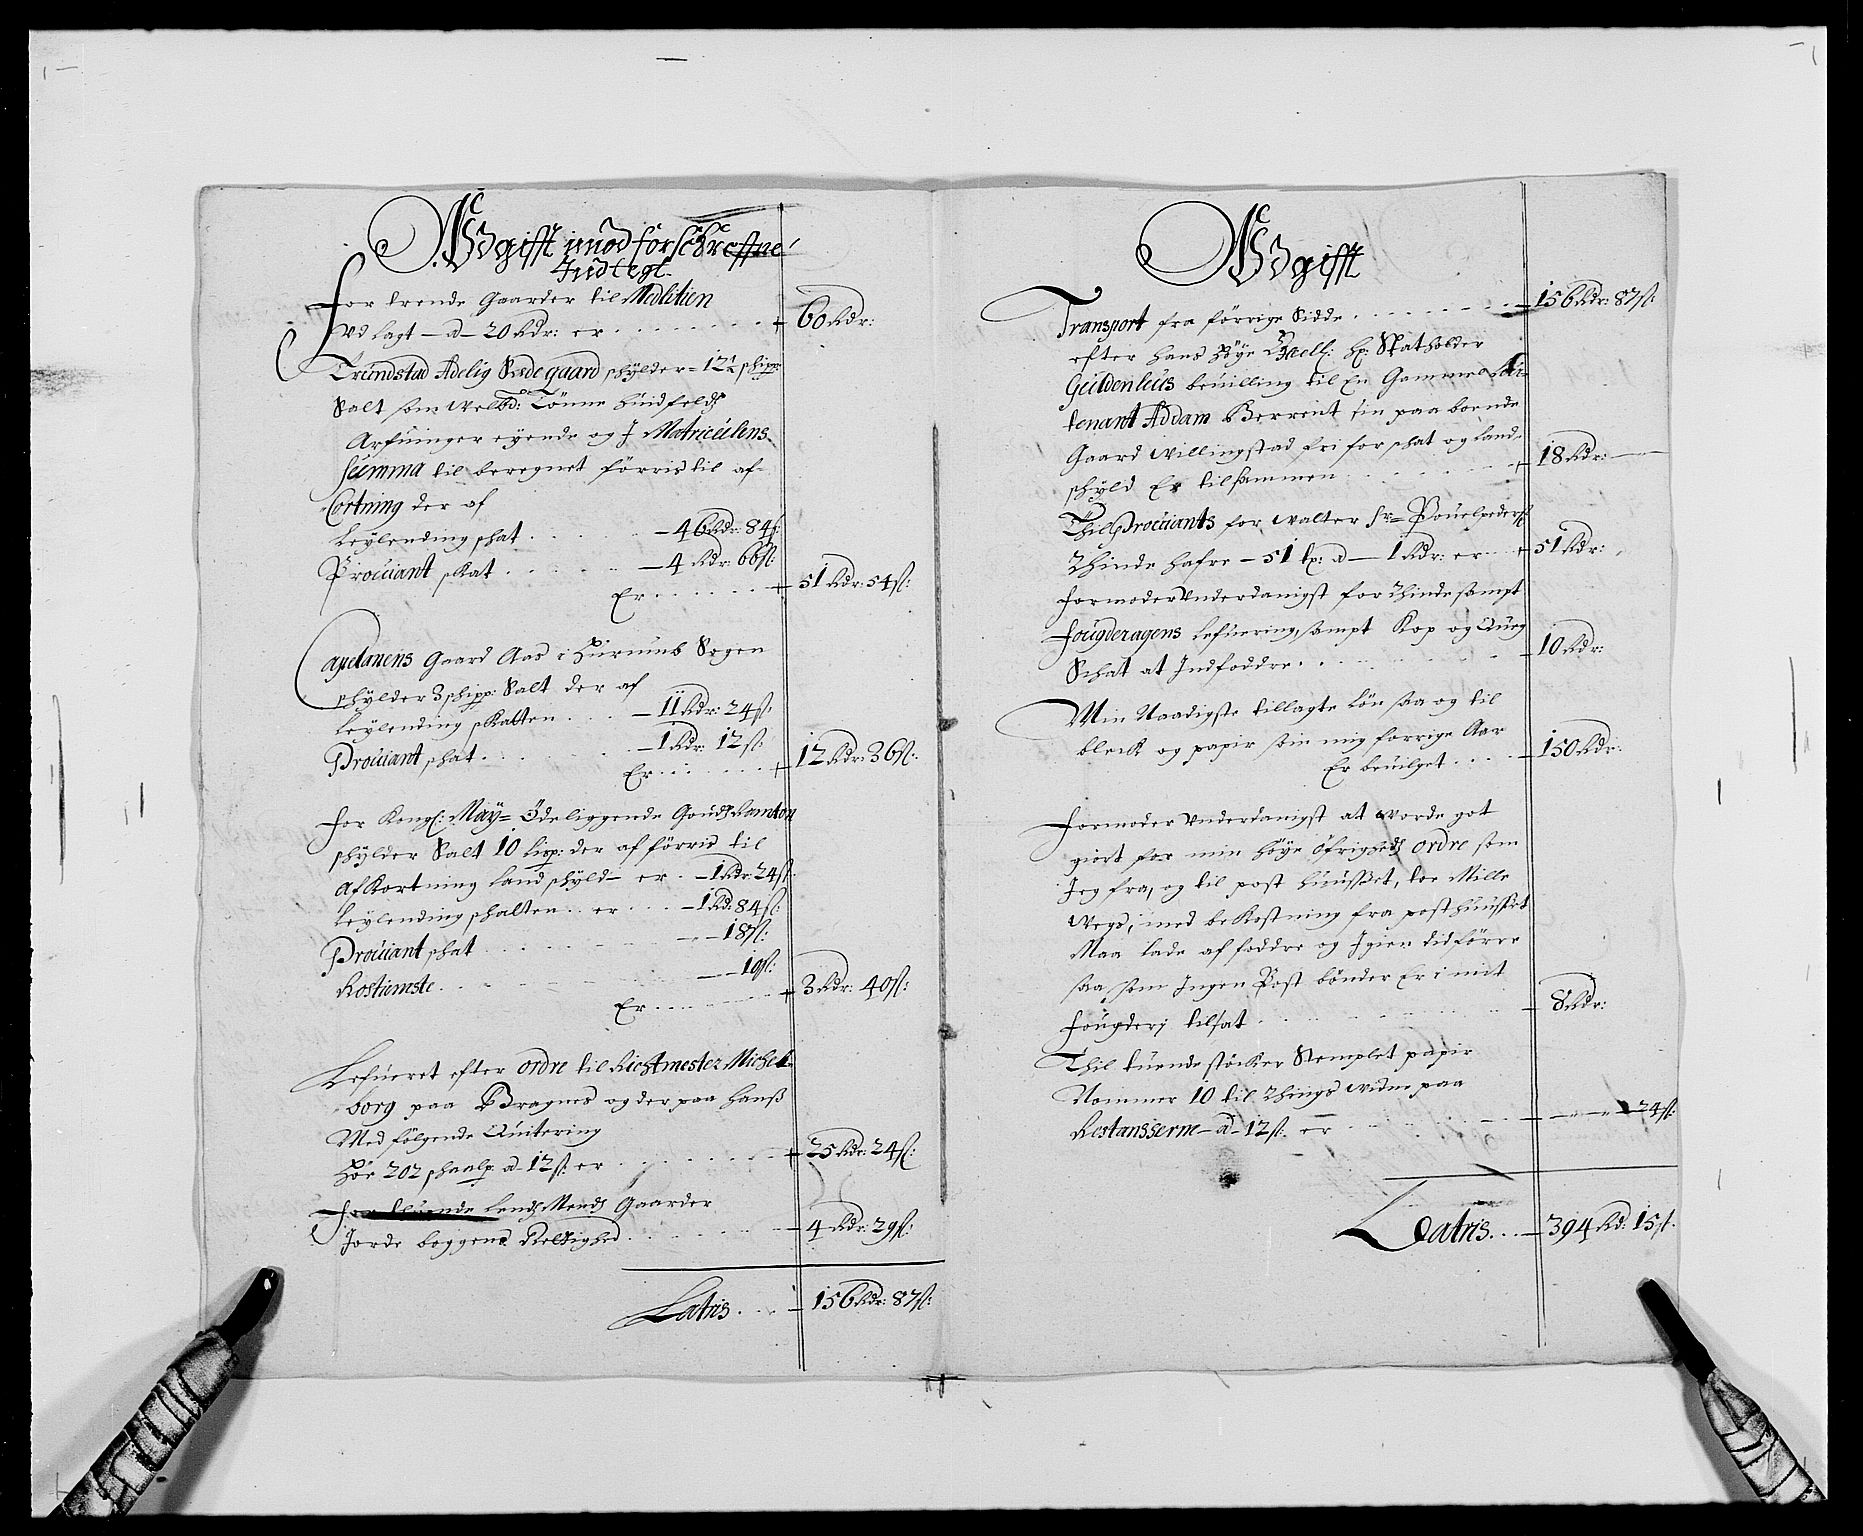 Udgifft imod forschreffne
Indtegt.
For trende Gaarder til Medlitien
Vdlagt - a - 20 Rdr: er
60 Rdr:
Trundstad Adelig Sædegaard schylder = 12½ schipp:
Salt som Welbd: Tønne Huidfelds
Arfuinger eyende og J Matriculens
Summa til beregnet førris til af-
Cortning der af
Leylending schat - 46 Rdr: 84 ß:
Prouiant skat - 4 Rdr: 66 ß:
Er 51 Rdr: 54 ß:
Capelanens Gaard Aas i Hurumb Sogen
schylder 3 schipp: Salt der af
Leylending skatten - 11 Rdr: 24 ß:
Prouiant schat - 1 Rdr: 12 ß:
Er 12 Rdr: 36 ß:
For Kongl: May= Ødeliggende Gouds Ramton
schylder Salt 10 Lispp: der af førris til
Afkortning Landschyld - er - 1 Rdr 24 ß:
Leylending schatten er - 1 Rd: 84 ß:
Prouiant schat - 18 ß:
Rostienste - 10 ß:
Er 3 Rdr: 40 ß:
Lefueret efter ordre til Richtmester Michel-
borg paa Bragnes og der paa hanß
Med følgende Quitering
Hør 202 schaalp a - 12 ß: er 25 Rdr: 24 ß:
For tuende Lendsmends Gaarder
Jorde boggens Rettighed 4 Rdr: 29 ß:
Latris 156 Rdr: 87 ß:
Udgifft
Transport fra førrige Sidde 156 Rdr: 87 ß:
efter hans høye Excell: Hr: Statholder
Guldenleus beuilling til En Gammel Leu-
tenant Addam Berrent sin paa boende
Gaard Willingstad fri for schat og land-
schyld Er tilsammen 18 Rdr:
Thil Prouiants for walter Sr= Pouelpeders
Thinde hafre - 51 tr: a - 1 Rdr: er 51 Rdr:
Formoder Vnderdanigst for Thinde sampt
Fougderagens Lefuering, sampt Kop og Queg
Schat at Indfoddre 10 Rdr:
Min Naadigste tillagte Løn saa og til
bleck og papir som mig forrige Aar
Er beuilget 150 Rdr:
Formoder Vnderdanigst at worde got
giort for min høye Øfrigheds ordre som
Jeg fra, og til post huusset, toe Mille
Wegs, med bekostning fra posthuusset
Maa lade af foddre og Igien didføre
saa som Ingen Post bønder Er i mit
Fougderj tilsat 8 Rdr:
Thil tuende støcker Stemplet papir
Nommer 10 til Things Widne paa
Restansserne - a - 12 ß: er 24 ß:
Latris 394 Rd: 15 ß: